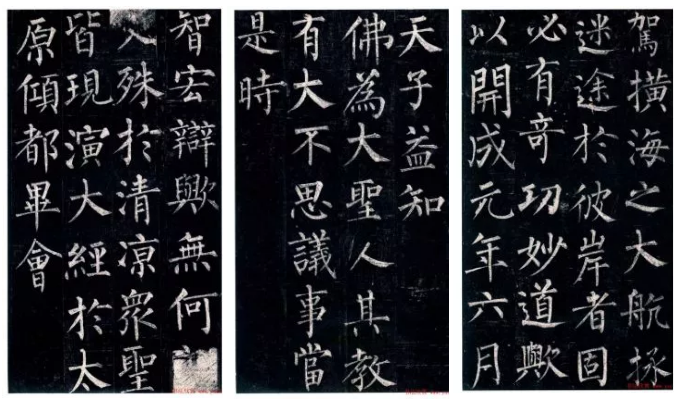 駕橫海之大航拯
迷途於彼岸者固
必有奇功妙道歟
以開成元年六月
天子益知
佛為大聖人其教
有大不思議事當
是時
智宏辯歟無何
殊於清涼衆聖
皆現演大經於太
原傾都畢會